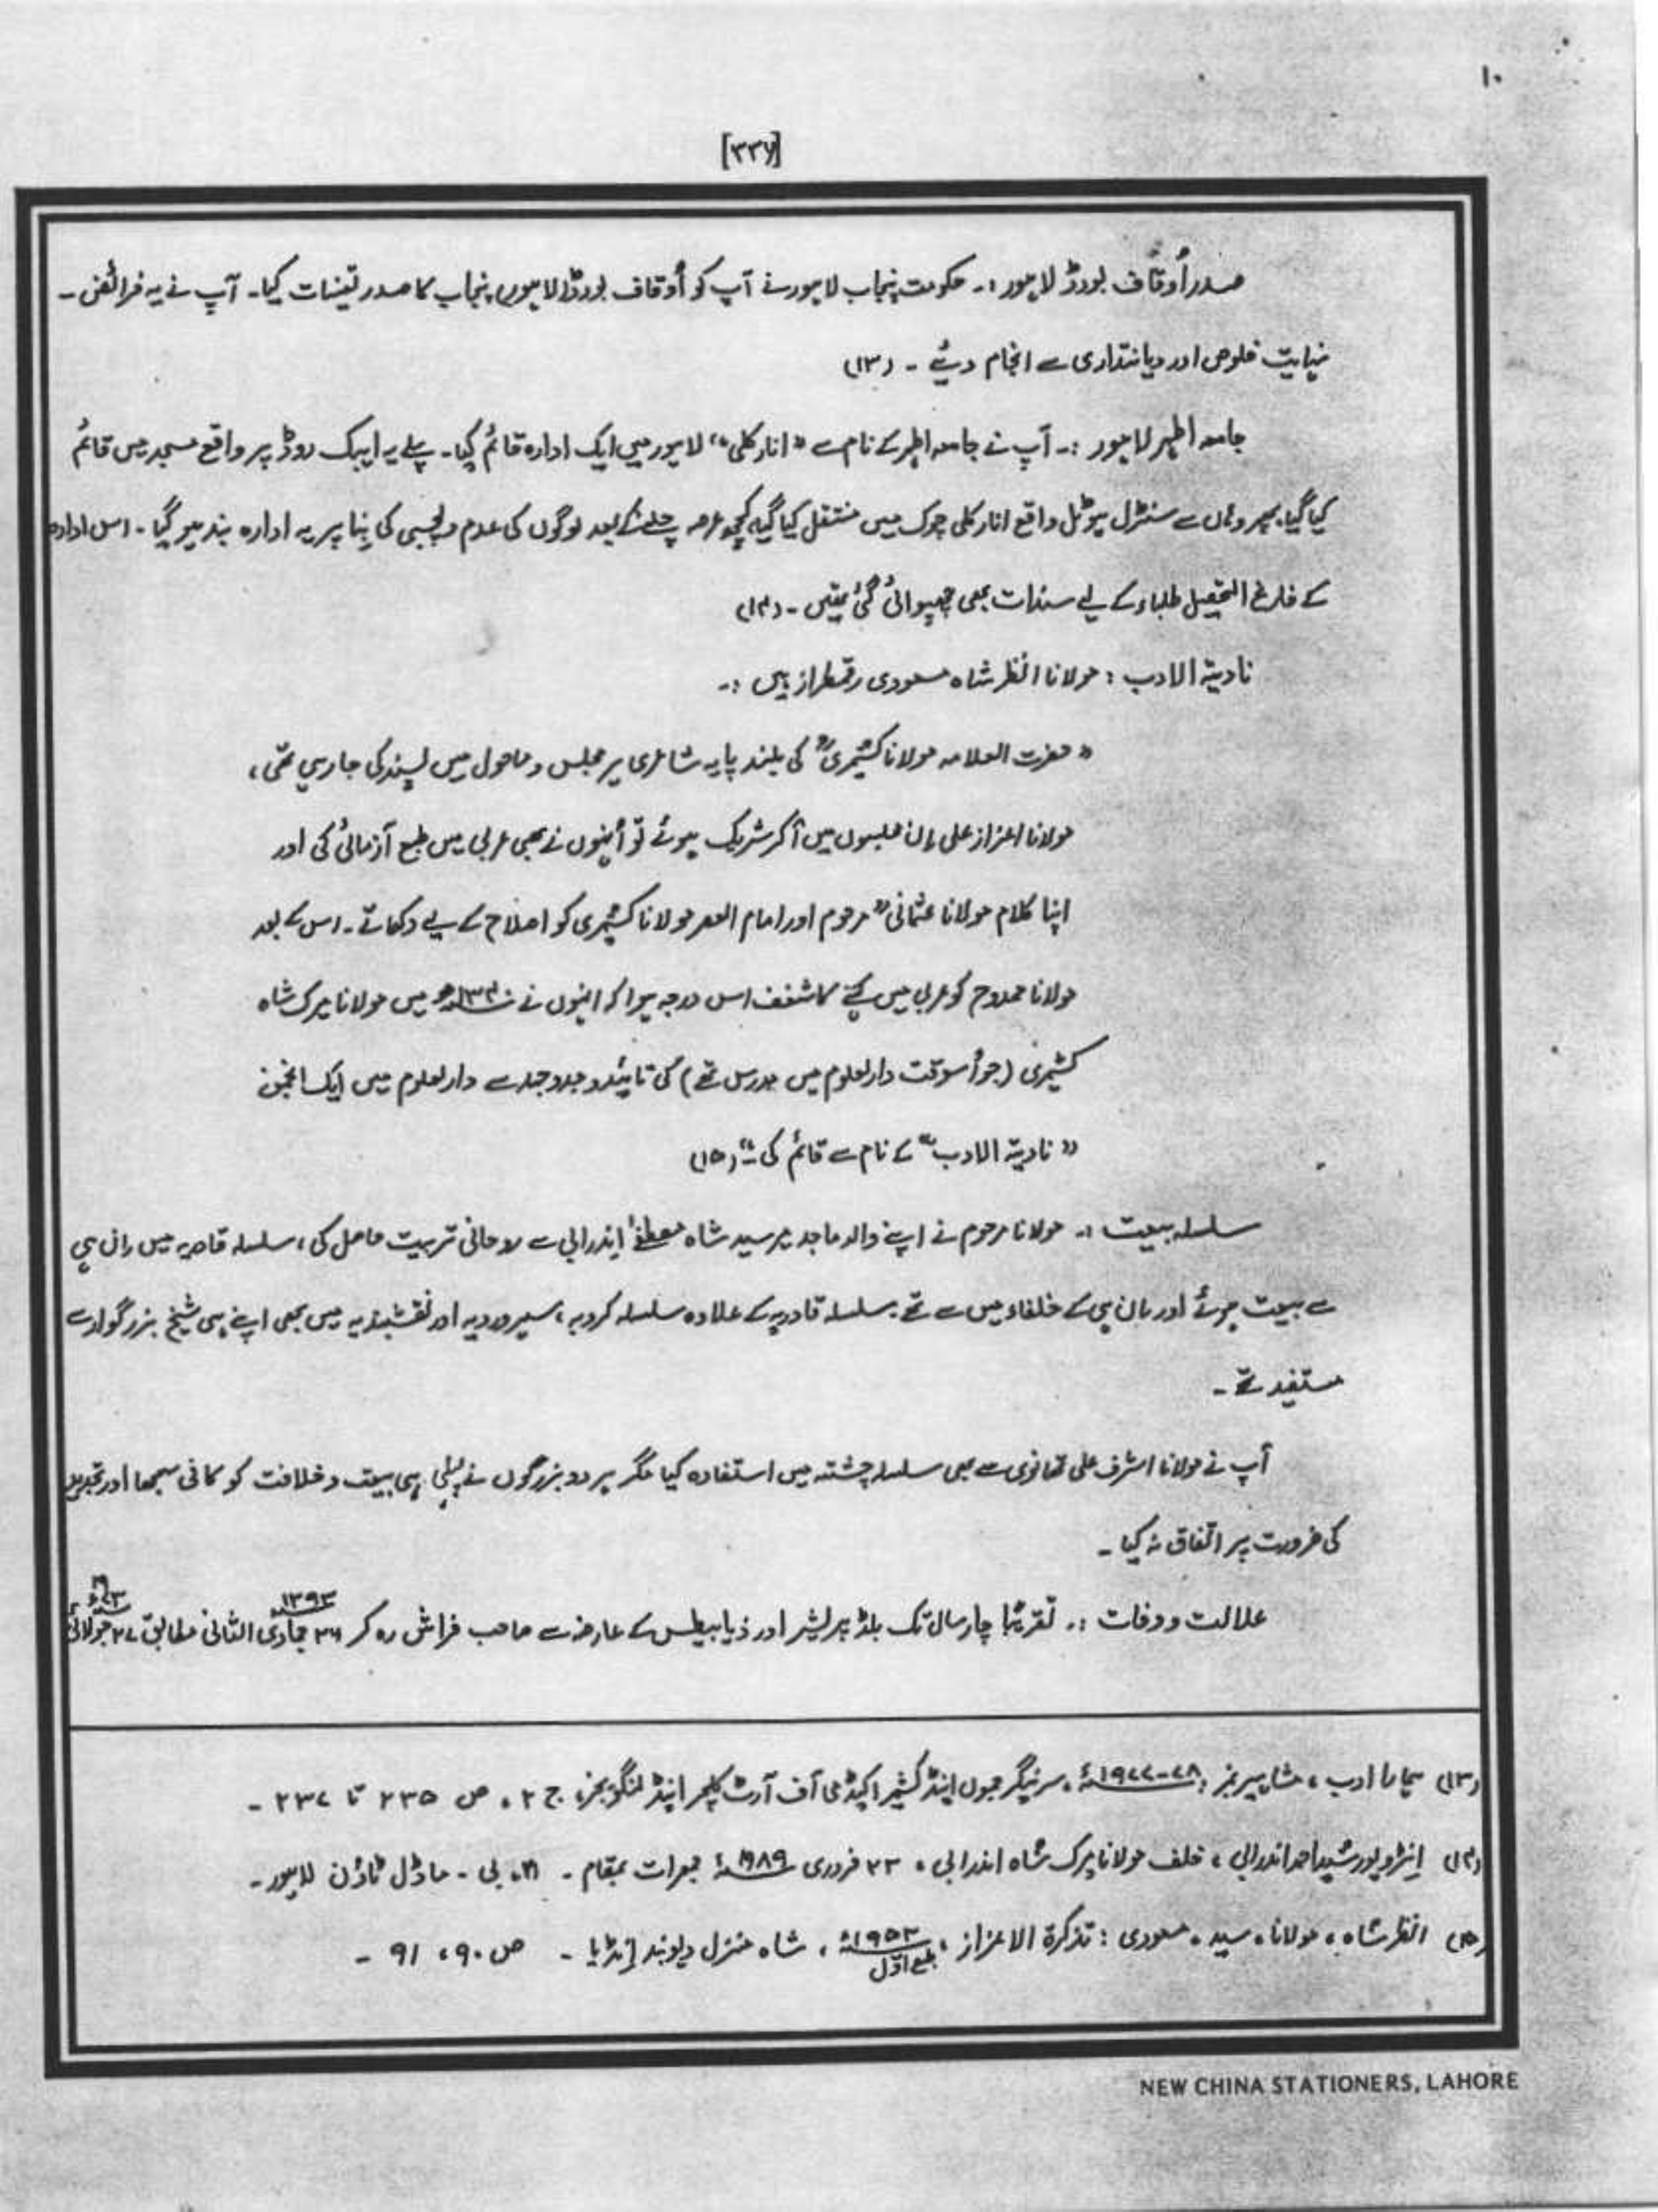 ۱۰
[۳۳۶]
صدر اُوقاف بورڈ لاہور :۔ حکومت پنجاب لاہور نے آپ کو اُوقاف بورڈ (لاہور) پنجاب کا صدر تعینات کیا۔ آپ نے یہ فرائض ۔
نہایت خلوص اور دیانتداری سے انجام دیئے ۔ (۱۳)
جامعہ اطہر لاہور :۔ آپ نے جامعہ اطہر کے نام سے "انارکلی" لاہور میں ایک ادارہ قائم کیا۔ پہلے یہ ایبک روڈ پر واقع مسجد میں قائم
کیا گیا۔ پھر وہاں سے سنٹرل ہوٹل واقع انارکلی چوک میں منتقل کیا گیا کچھ عرصہ چلنے کے بعد لوگوں کی عدم دلچسپی کی بِنا پر یہ ادارہ بند ہو گیا ۔ اس ادارہ
کے فارغ التحصیل طلباء کے لیے سندات بھی چھپوائی گئی تھیں ۔ (۱۴)
نادیۃ الادب : مولانا انظر شاہ مسعودی رقمطراز ہیں :۔
"حضرت العلامہ مولانا کشمیریؒ کی بلند پایہ شاعری ہر مجلس و ماحول میں پسند کی جا رہی تھی ،
مولانا اعزاز علی اِن مجلسوں میں آکر شریک ہوئے تو اُنہوں نے بھی عربی میں طبع آزمائی کی اور
اپنا کلام مولانا عثمانیؒ مرحوم اور امام العصر مولانا کشمیری کو اصلاح کے لیے دکھاتے ۔ اس کے بعد
مولانا ممدوح کو عربی میں کہنے کا شغف اس درجہ ہوا کہ انہوں نے ۱۳۴۰ھ میں مولانا میرک شاہ
کشمیری (جو اُسوقت دارلعلوم میں مدرس تھے) کی تائید و جدوجہد سے دارلعلوم میں ایک انجمن
"نادیۃ الادب" کے نام سے قائم کی ۔" (۱۵)
سلسلہ بیعت :۔ مولانا مرحوم نے اپنے والد ماجد میر سید شاہ مصطفےٰ اندرابی سے روحانی تربیت حاصل کی ، سلسلہ قادریہ میں اِن ہی
سے بیعت ہوئے اور اِن ہی کے خلفاء میں سے تھے۔ سلسلہ قادریہ کے علاوہ سلسلہ کبرویہ ، سہروردیہ اور نقشبندیہ میں بھی اپنے ہی شیخ بزرگوار سے
مستفید تھے ۔
آپ نے مولانا اشرف علی تھانوی سے بھی سلسلہ چشتیہ میں استفادہ کیا مگر ہر دو بزرگوں نے پہلی ہی بیعت و خلافت کو کافی سمجھا اور تجدید
کی ضرورت پر اتفاق نہ کیا ۔
علالت و وفات :۔ تقریباً چار سال تک بلڈ پریشر اور ذیابیطس کے عارضہ سے صاحب فراش رہ کر ۲۶ جمادی الثانی ۱۳۹۳ھ مطابق ۲۷ جولائی ۱۹۷۳ء
(۱۳) ہمارا ادب ، مشاہیر نمبر ، ۷۸-۱۹۷۷ء ، سرنیگر جموں اینڈ کشمیر اکیڈمی آف آرٹ کلچر اینڈ لنگویجز ، ج ۲ ، ص ۲۳۵ تا ۲۳۷ ۔
(۱۴) اِنٹرویو رشید احمد اندرابی ، خلف مولانا میرک شاہ اندرابی ، ۲۳ فروری ۱۹۸۹ء جمعرات بمقام ۔ بی ۔ ماڈل ٹاؤن لاہور ۔
(۱۵) انظر شاہ ، مولانا ، سید ، مسعودی : تذکرۃ الاعزاز ، ۱۹۵۲ء طبع اوّل ، شاہ منزل دیوبند اِنڈیا ۔ ص ۹۰ ، ۹۱ ۔
NEW CHINA STATIONERS, LAHORE